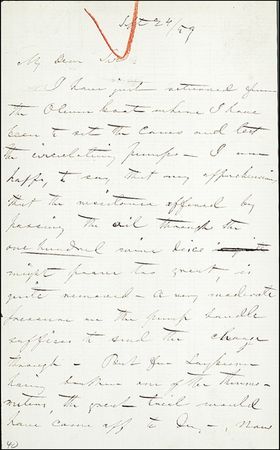 Sept 24/59
My Dear
I have just returned from
the
been to set the Cans and test
the circulating pumps – I am
happy to say that my apprehension
that the resistance offered by
passing the oil through the
one hundred wire discs
might prove too great, is
quite removed – a very moderate
pressure on the pump handle
suffices to send the charge
through – But Dr
having broken one of the thermo-
meters, the great trial would
have come off to day –, Now
40